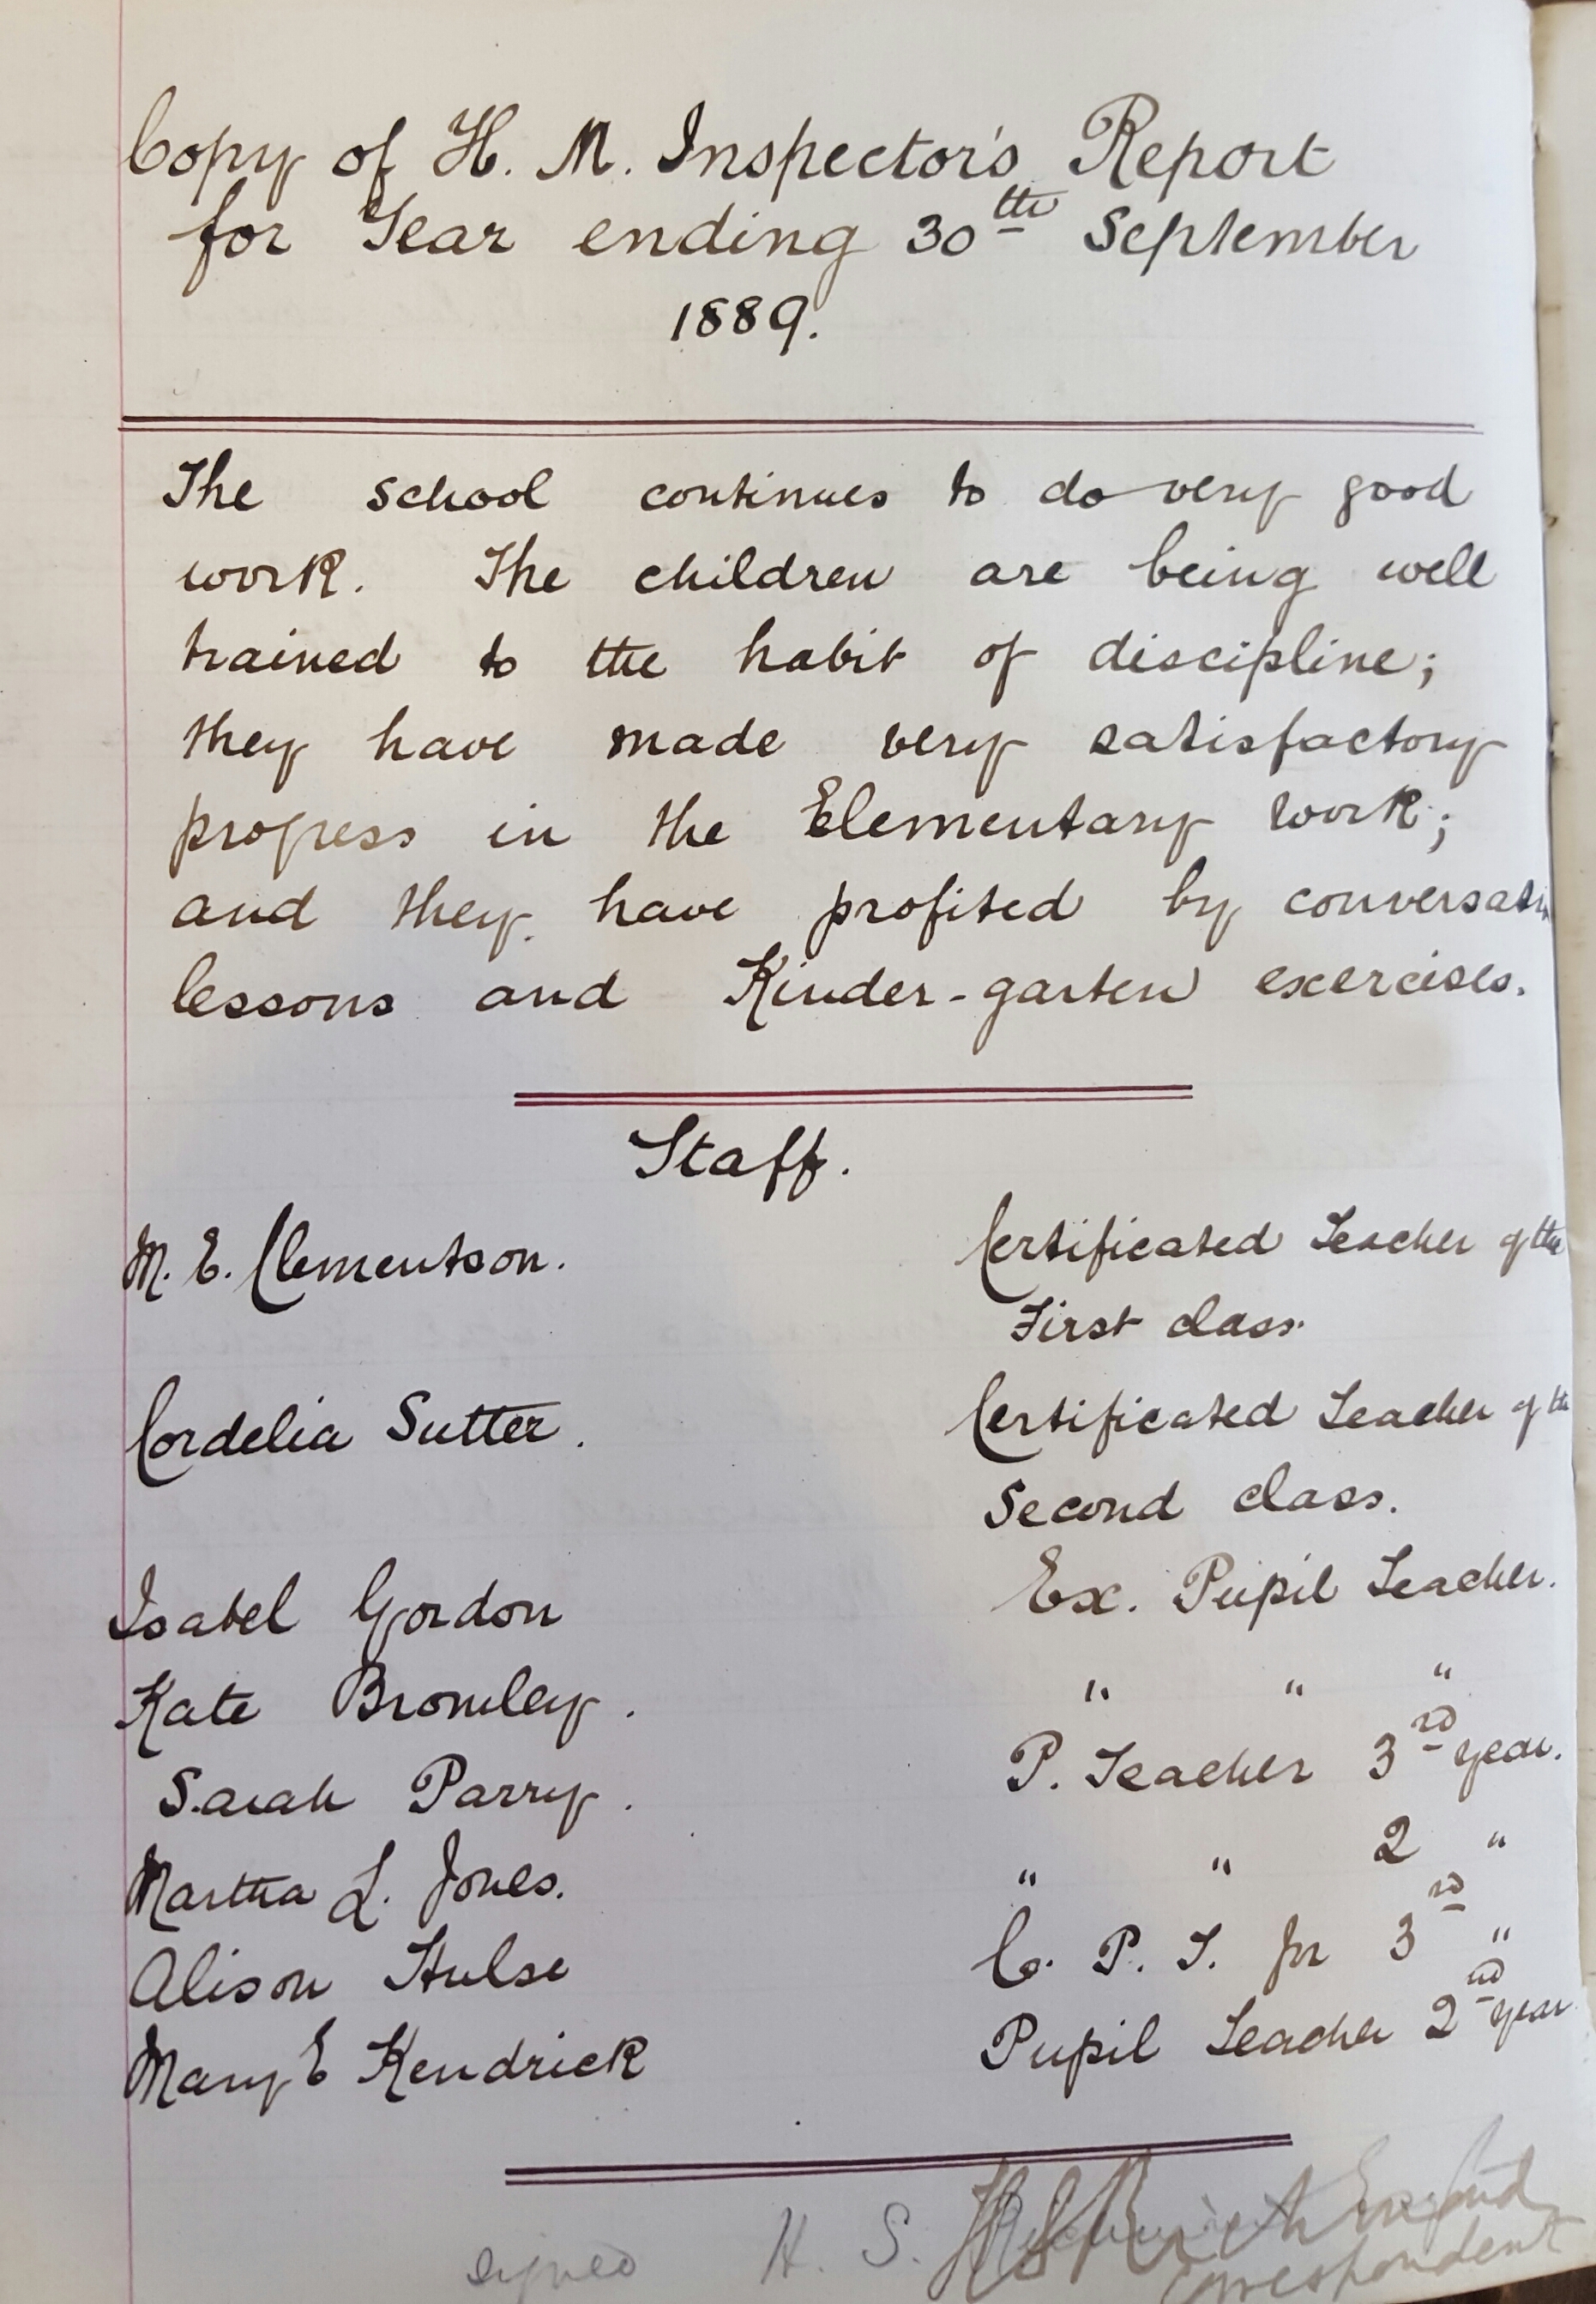 Copy of H. M. Inspector's Report
for Year ending 30th September
1889.
The school continues to do very good
work. The children are being well
trained to the habit of discipline;
they have made very satisfactory
progress in the Elementary work;
and they have profited by conversati
lessons and Kinder-garten exercises.
Staff.
M. E. Clementson. Certificated Teacher of the
First class.
Cordelia Sutter. Certificated Teacher of th
Second class.
Isabel Gordon Ex. Pupil Teacher.
Kate Bromley. " " "
Sarah Parry. P. Teacher 3rd year.
Martha L. Jones. " " 2 "
Alison Hulse C. P. T. for 3rd "
Mary E Kendrick Pupil Teacher 2nd year
signed H. S.
correspondent